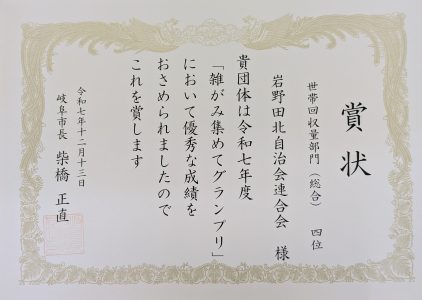 賞状
世帯回収量部門（総合） 四位
岩野田北自治会連合会 様
貴団体は令和七年度
「雑がみ集めてグランプリ」
において優秀な成績を
おさめられましたので
これを賞します
令和七年十二月十三日
岐阜市長 柴橋 正直